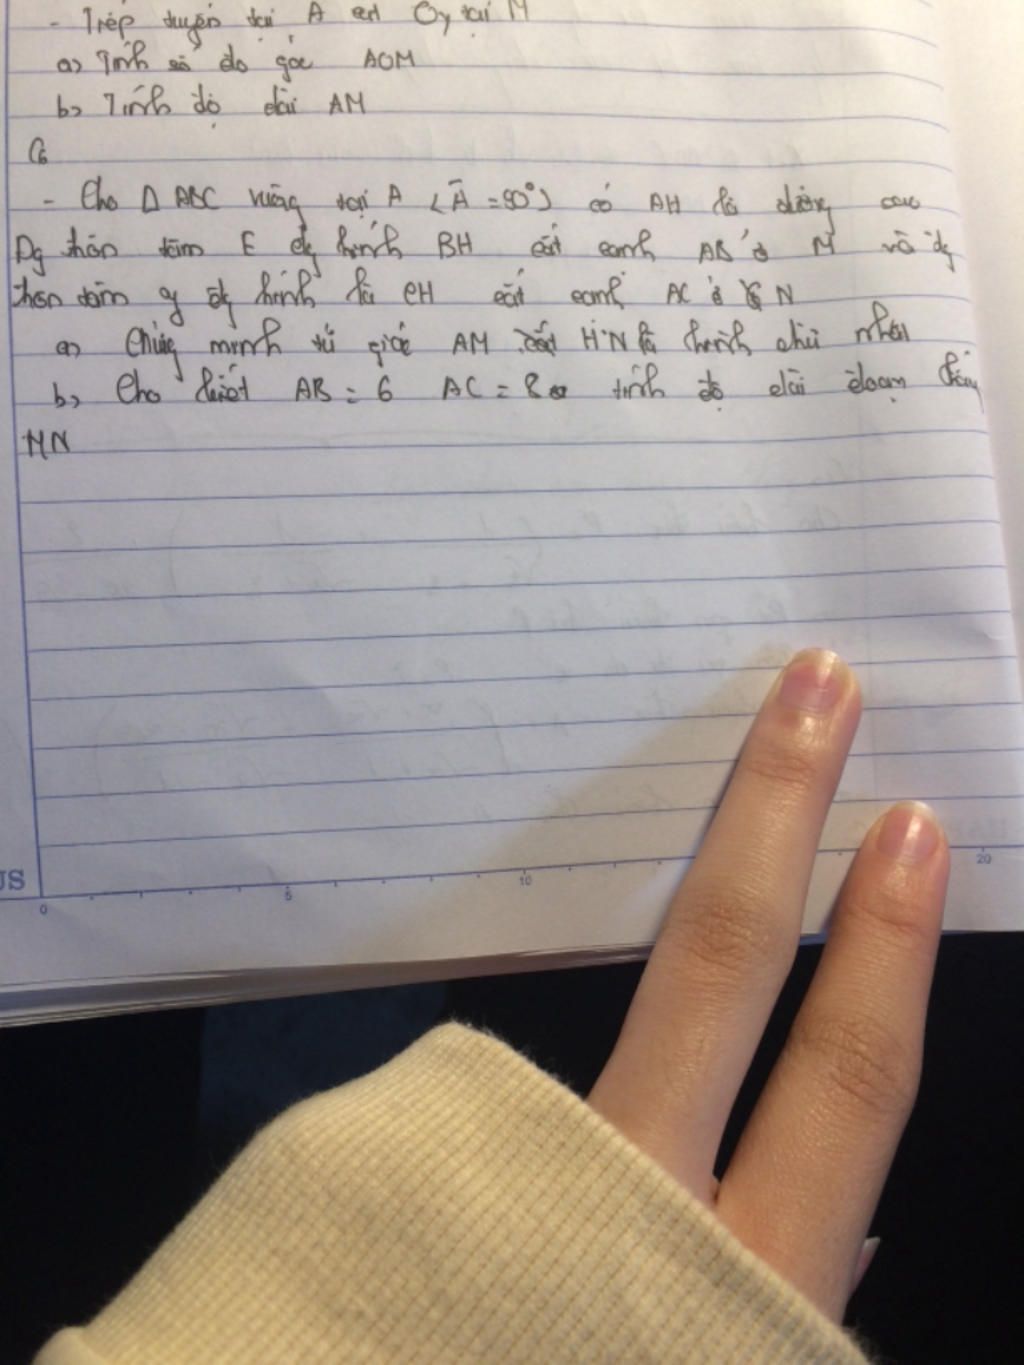 - Tiếp tuyến tại A cắt Oy tại M
a) Tính số đo góc AOM
b) Tính độ dài AM
C6
- Cho Δ ABC vuông tại A (Â = 90°) có AH là đường cao
Đg tròn tâm E đg kính BH cắt cạnh AB ở M và đg
tròn tâm đg kính là CH cắt cạnh AC ở N
a) Chứng minh tứ giác AM HN là hình chữ nhật
b) Cho biết AB = 6 AC = 8 tính độ dài đoạn thẳng
MN
US
0 5 10 20